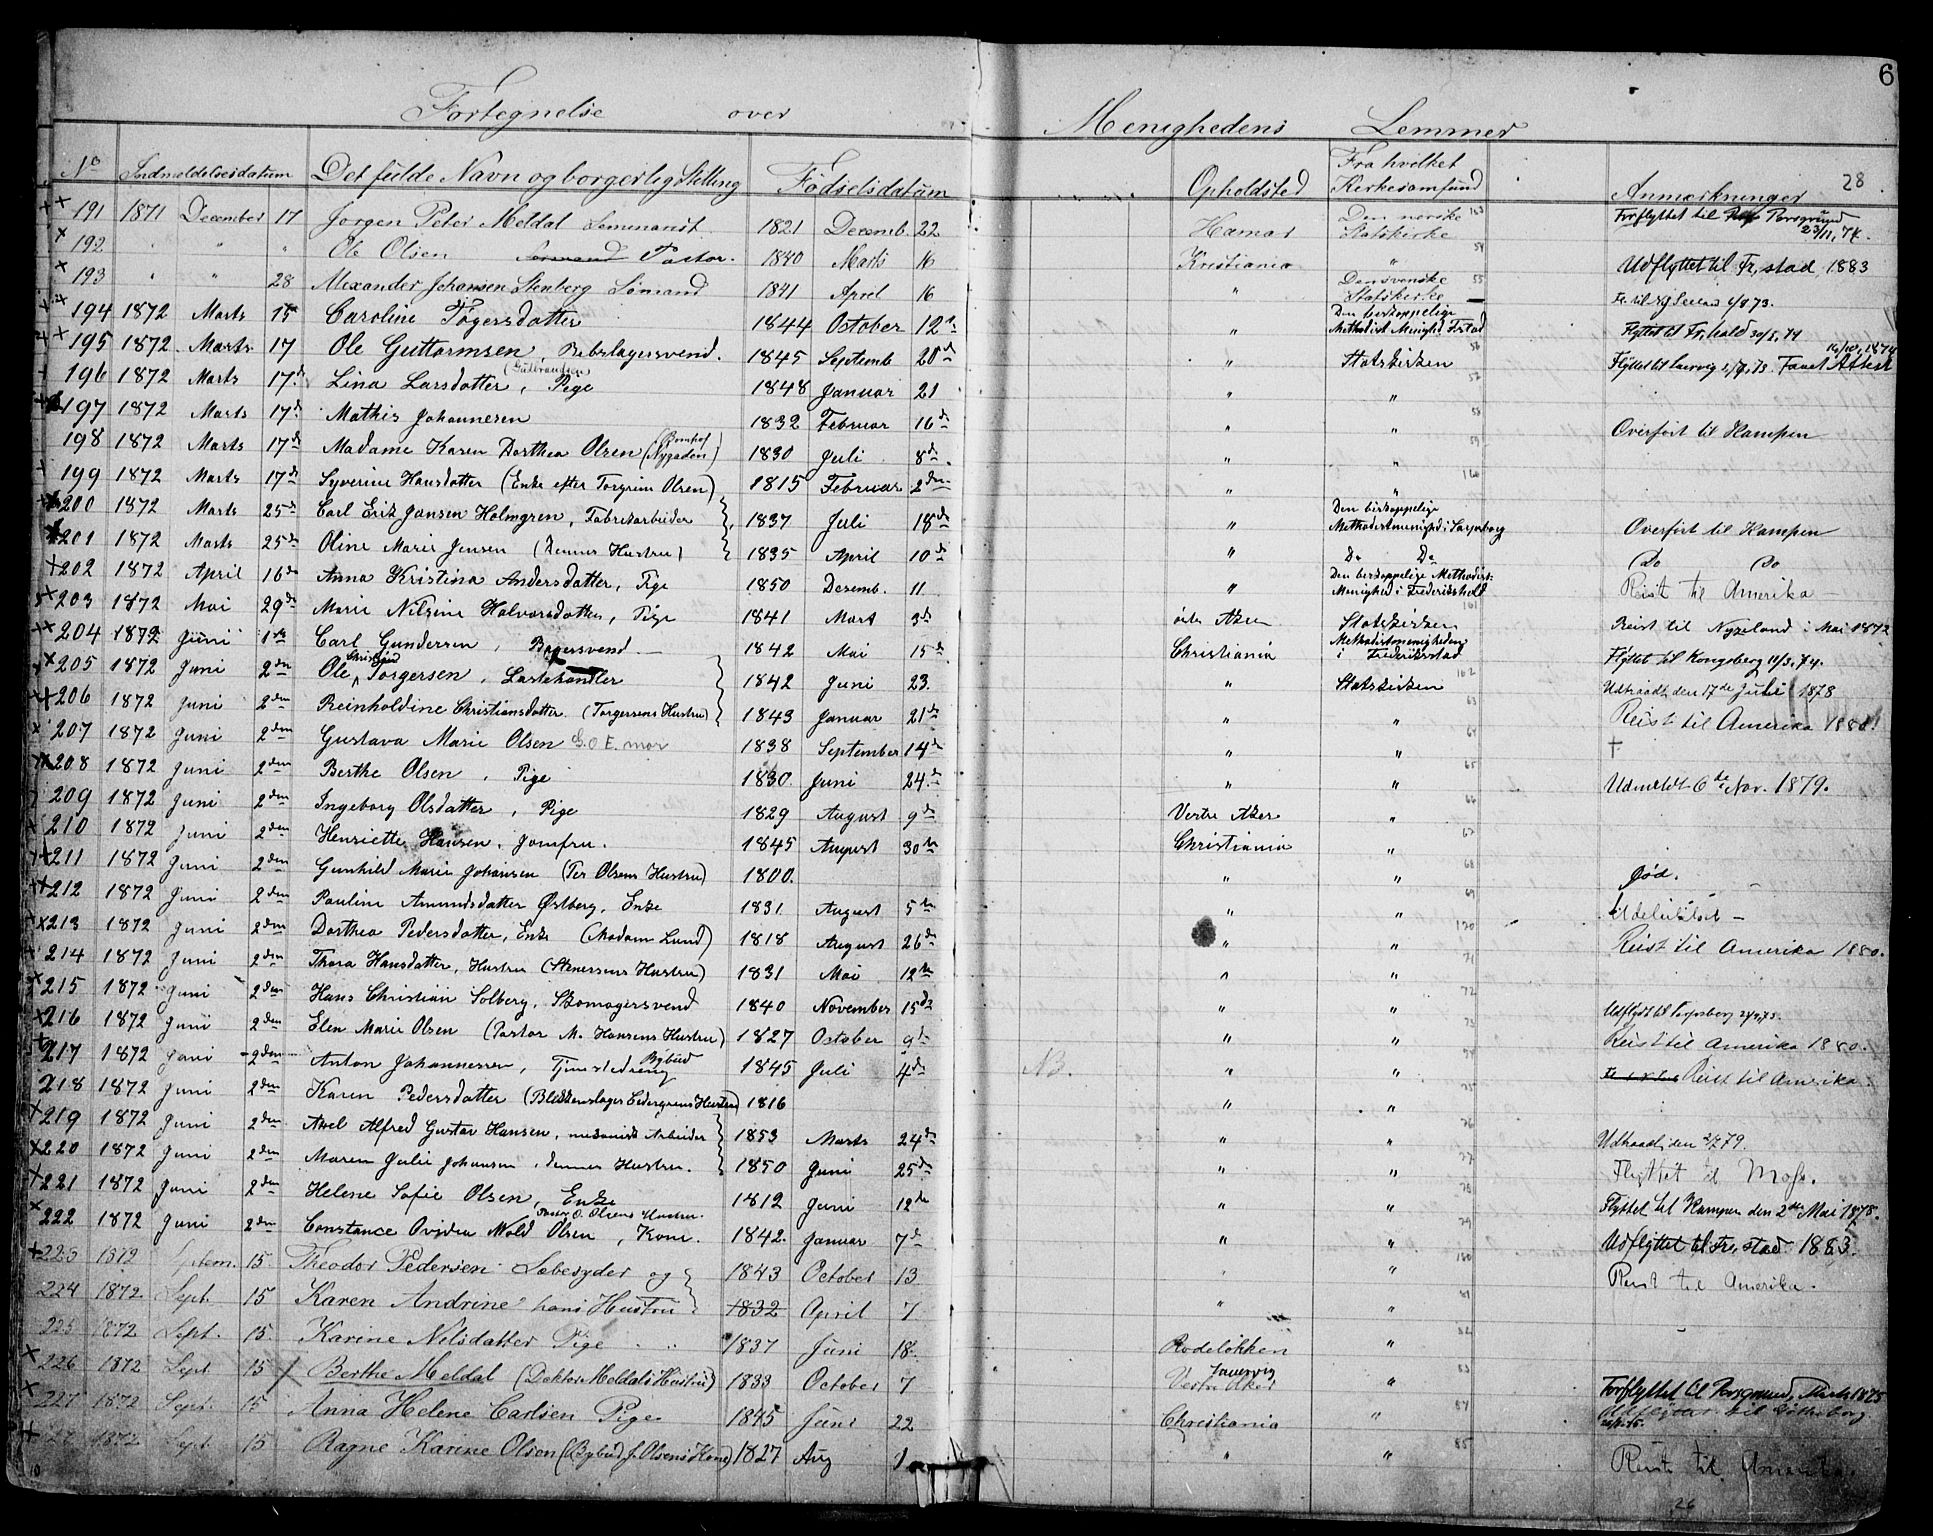 6
Fortegnelse over Menighedens Lemmer
28
No Indmeldelsesdatum Det fulde Navn og borgerlig Stilling Fødselsdatum Opholdsted Fra hvilket Kirkesamfund Anmærkninger
191 1871 December 17 Jørgen Peter Meldal 1821 Decemb. 22 Hamar Den norske Statskirke Forflyttet til Porsgrund 23/11, 74.
192 " " " Ole Olsen Pastor. 1840 Marts 16 Kristiania " Udflyttet til Fr.stad, 1883
193 " " 28 Alexander Johansen Stenberg Sømand 1841 April 16 " Den svenske Statskirke
194 1872 Marts 15 Caroline Tøgersdatter 1844 October 12te " Den biskoppelige Methodist Menighd Fr.stad Flyttet til Fr.hald 30/5, 74
195 1872 Marts 17 Ole Guttormsen, Rebslagersvend. 1845 Septemb 20de " Statskirken Flyttet til Laurvig
196 1872 Marts 17de Lina Larsdatter, (Gulbrandsen) Pige 1848 Januar 21 " "
197 1872 Marts 17de Mathis Johannesen 1832 Februar 16de " " Overført til Kampen
198 1872 Marts 17de Madame Karen Dorthea Olsen (Nygaden) 1830 Juli 8de " "
199 1872 Marts 17de Syverine Hansdatter (Enke efter Torgrim Olsen) 1815 Februar 2den " "
200 1872 Marts 25de Carl Erik Jansen Holmgren, Fabrikarbeider 1837 Juli 18de " Den biskoppelige Methodistmenighd i Sarpsborg Overført til Kampen
201 1872 Marts 25de Oline Marie Jensen (Dennes Hustru) 1835 April 10de " Do Do (Do Do
202 1872 April 16de Anna Kristina Andersdatter, Pige 1850 Desemb. 11 " Den biskoppelige Methodist- Menighed i Frederikshald Reist til Amerika
203 1872 Mai 29de Marie Nilsine Halvorsdatter, Pige 1841 Mart 3de Aker Statskirken Reist til Nyzeland i Mai 1872
204 1872 Juni 1ste Carl Gundersen, Bagersvend 1842 Mai 15de Christiania Methodistmenigheden i Frederiksstad Flyttet til Kongsberg 11/3, 74.
205 1872 Juni 2den Ole Christian Torgersen, Lastehandler 1842 Juni 23. " Statskirken Udtraadt den 17de Juli 1878
206 1872 Juni 2den Reinholdine Christiansdatter. (Torgersens Hustru) 1843 Januar 21de " " Reist til Amerika 1880.
207 1872 Juni 2den Gustava Marie Olsen G.O.E. mor 1838 September 14de " " †
208 1872 Juni 2den Berthe Olsen, Pige 1830. Juni 24de " " Udmeldt 6de Nov. 1879.
209 1872 Juni 2den Ingeborg Olsdatter, Pige 1829 August 9de Vestre Aker "
210 1872 Juni 2den Henriette Hansen, Jomfru. 1845 August 30te Christiania "
211 1872 Juni 2den Gunhild Marie Johansen (Per Olsens Hustru) 1800. " " Død.
212 1872 Juni 2den Pauline Amundsdatter Østberg, Enke 1831. August 5te " " Udelukket
213 1872 Juni 2den Dorthea Pedersdatter, Enke (Madam Lund) 1818 August 26de " " Reist til Amerika 1880.
214 1872 Juni 2den Thora Hansdatter, Hustru (Stenersens Hustru) 1831 Mai 12te " "
215 1872 Juni 2den Hans Christian Solberg, Skomagersvend 1840 November 15de " " Udflydt til Sarpsborg
216 1872 Juni 2den Elen Marie Olsen (Pastor M. Hansens Hustru) 1827 October 9de " " Reist til Amerika 1880.
217 1872 Juni 2den Anton Johannessen, Tjenstedreng Bybud 1845 Juli 4de NB. " " Reist til Amerika
218 1872 Juni 2den Karen Pedersdatter (Blikkenslager Cedergrens Hustru) 1816 " "
219 1872 Juni 2den Axel Alfred Gustav Hansen, mekanisk Arbeider 1853 Marts 24de " " Udtraadt, den 2/7 79.
220 1872 Juni 2den Maren Julie Johansen, dennes Hustru. 1850 Juni 25de " " Flyttet til Moss.
221 1872 Juni 2den Helene Sofie Olsen, Enke 1812 Juni 12te " " Flyttet til Kampen den 2den Mai 1878.
222 1872 Juni 2den Constance Ovidia Wold Olsen, Kone. Pastor O. Olsens Hustru. 1842. Januar 7de " " Udflyttet til Fr.stad 1883.
223 1872 Septem. 15. Theodor Pedersen Løbesyder og 1843 October 13 " " Reist til Amerika.
224 1872 Sept. 15 Karen Andrine hans Hustru 1832 April 7 " "
225 1872 Sept. 15. Karine Nilsdatter Pige 1837 Juni 18 Rodeløkken "
226 1872 Sept. 15 Berthe Meldal (Doktor Meldals Hustru) 1833 October 7 Vestre Aker " Forflyttet til Porsgrund, Marts 1875
227 1872 Sept. 15 Anna Helene Carlsen Pige 1845 Juni 22 Christiania " Udflyttet til Gøtheborg
1872 Sept 15 Ragne Karine Olsen (Bybud J. Olsens Kone) 1827 Aug 1 " " Reist til Amerika.
26